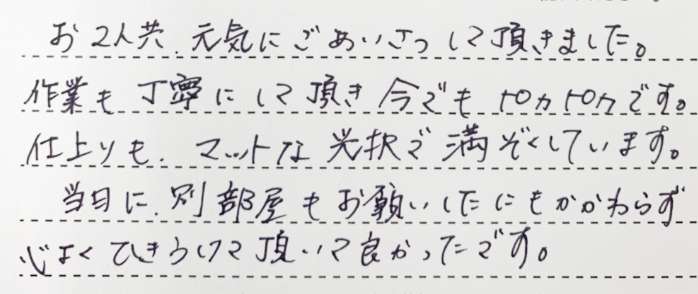 お2人共、元気にごあいさつして頂きました。
作業も丁寧にして頂き今でもピカピカです。
仕上りも、マットな光択で満ぞくしています。
当日に、別部屋もお願いしたにもかかわらず
心よくひきうけて頂いて良かったです。